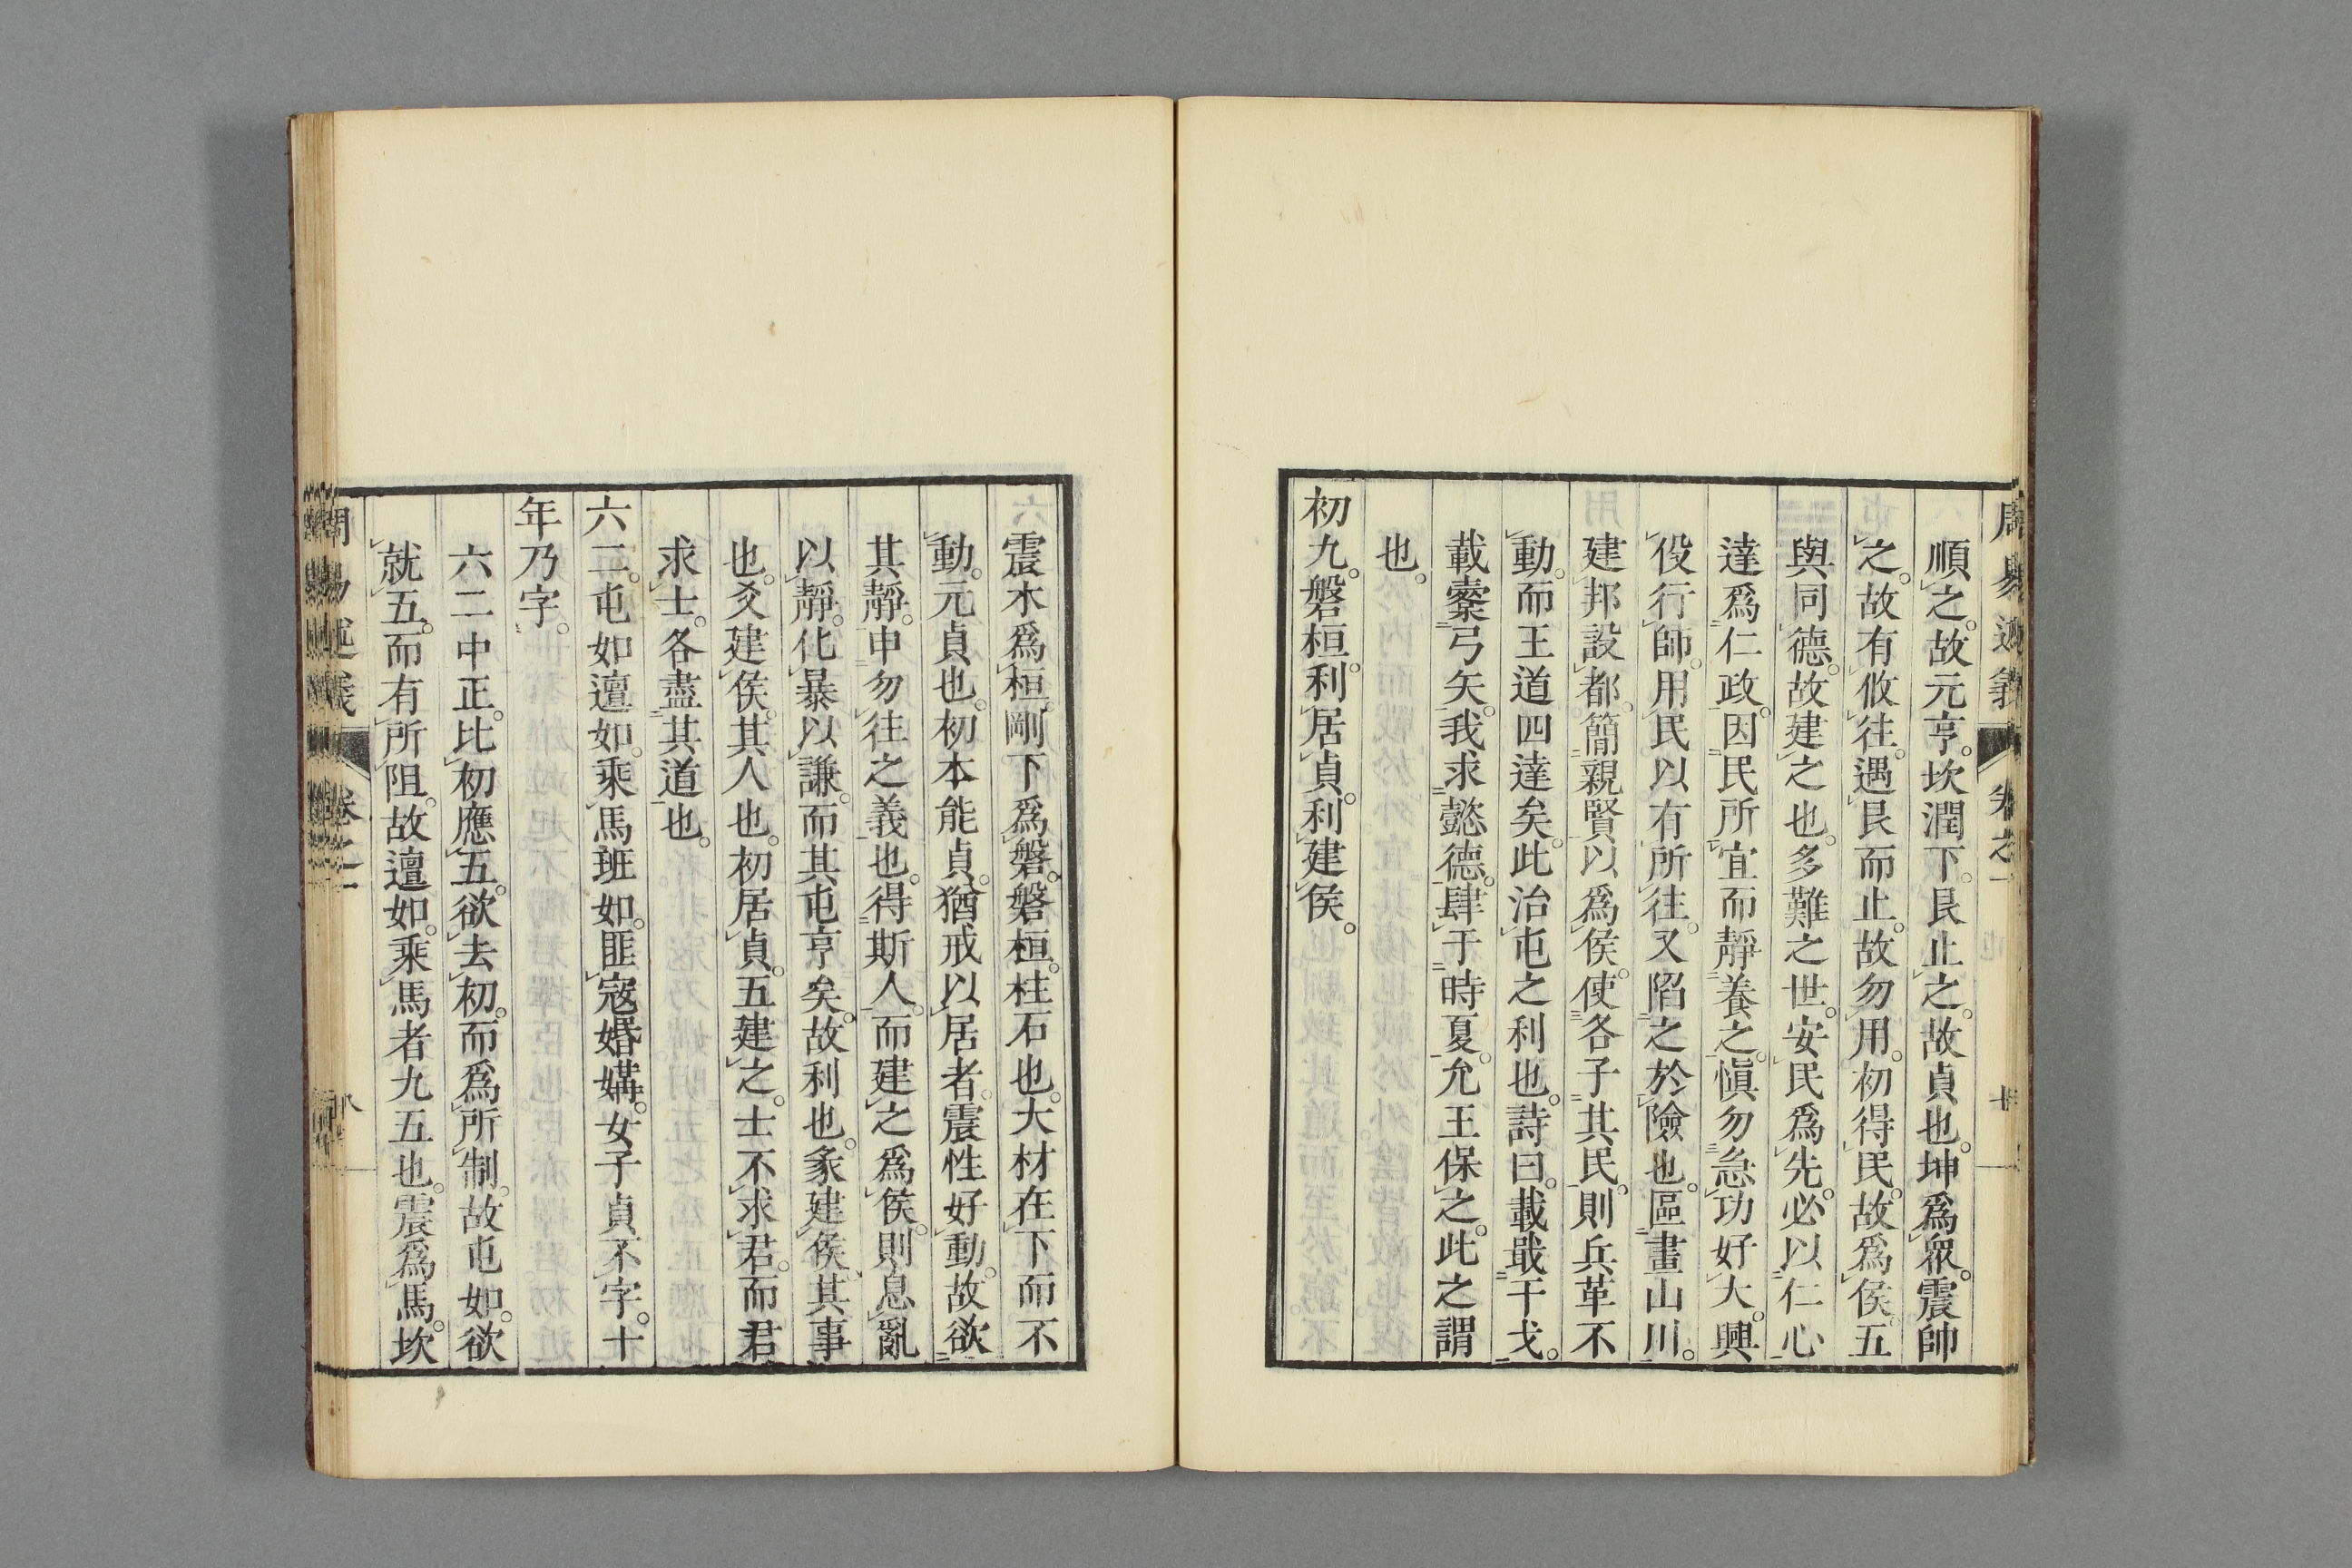 周易述義 卷之一
順之。故元亨。坎潤下。艮止之。故貞也。坤爲衆。震帥
之。故有攸往。遇艮而止。故勿用。初得民。故爲侯。五
與同德。故建之也。多難之世。安民爲先。必以仁心
達爲仁政。因民所宜而靜養之。愼勿急功好大。興
役行師。用民以有所往。又陷之於險也。區畫山川。
建邦設都。簡親賢以爲侯。使各子其民。則兵革不
動。而王道四達矣。此治屯之利也。詩曰。載戢干戈。
載櫜弓矢。我求懿德。肆于時夏。允王保之。此之謂
也。
初九。磐桓。利居貞。利建侯。
震木爲桓。剛下爲磐。磐桓。柱石也。大材在下而不
動。元貞也。初本能貞。猶戒以居者。震性好動。故欲
其靜。申勿往之義也。得斯人。而建之爲侯。則息亂
以靜。化暴以謙。而其屯亨矣。故利也。彖建侯。其事
也。爻建侯。其人也。初居貞。五建之。士不求君。而君
求士。各盡其道也。
六二。屯如邅如。乘馬班如。匪寇婚媾。女子貞不字。十
年乃字。
六二中正。比初應五。欲去初。而爲所制。故屯如。欲
就五。而有所阻。故邅如。乘馬者九五也。震爲馬。坎
周易述義 卷之一